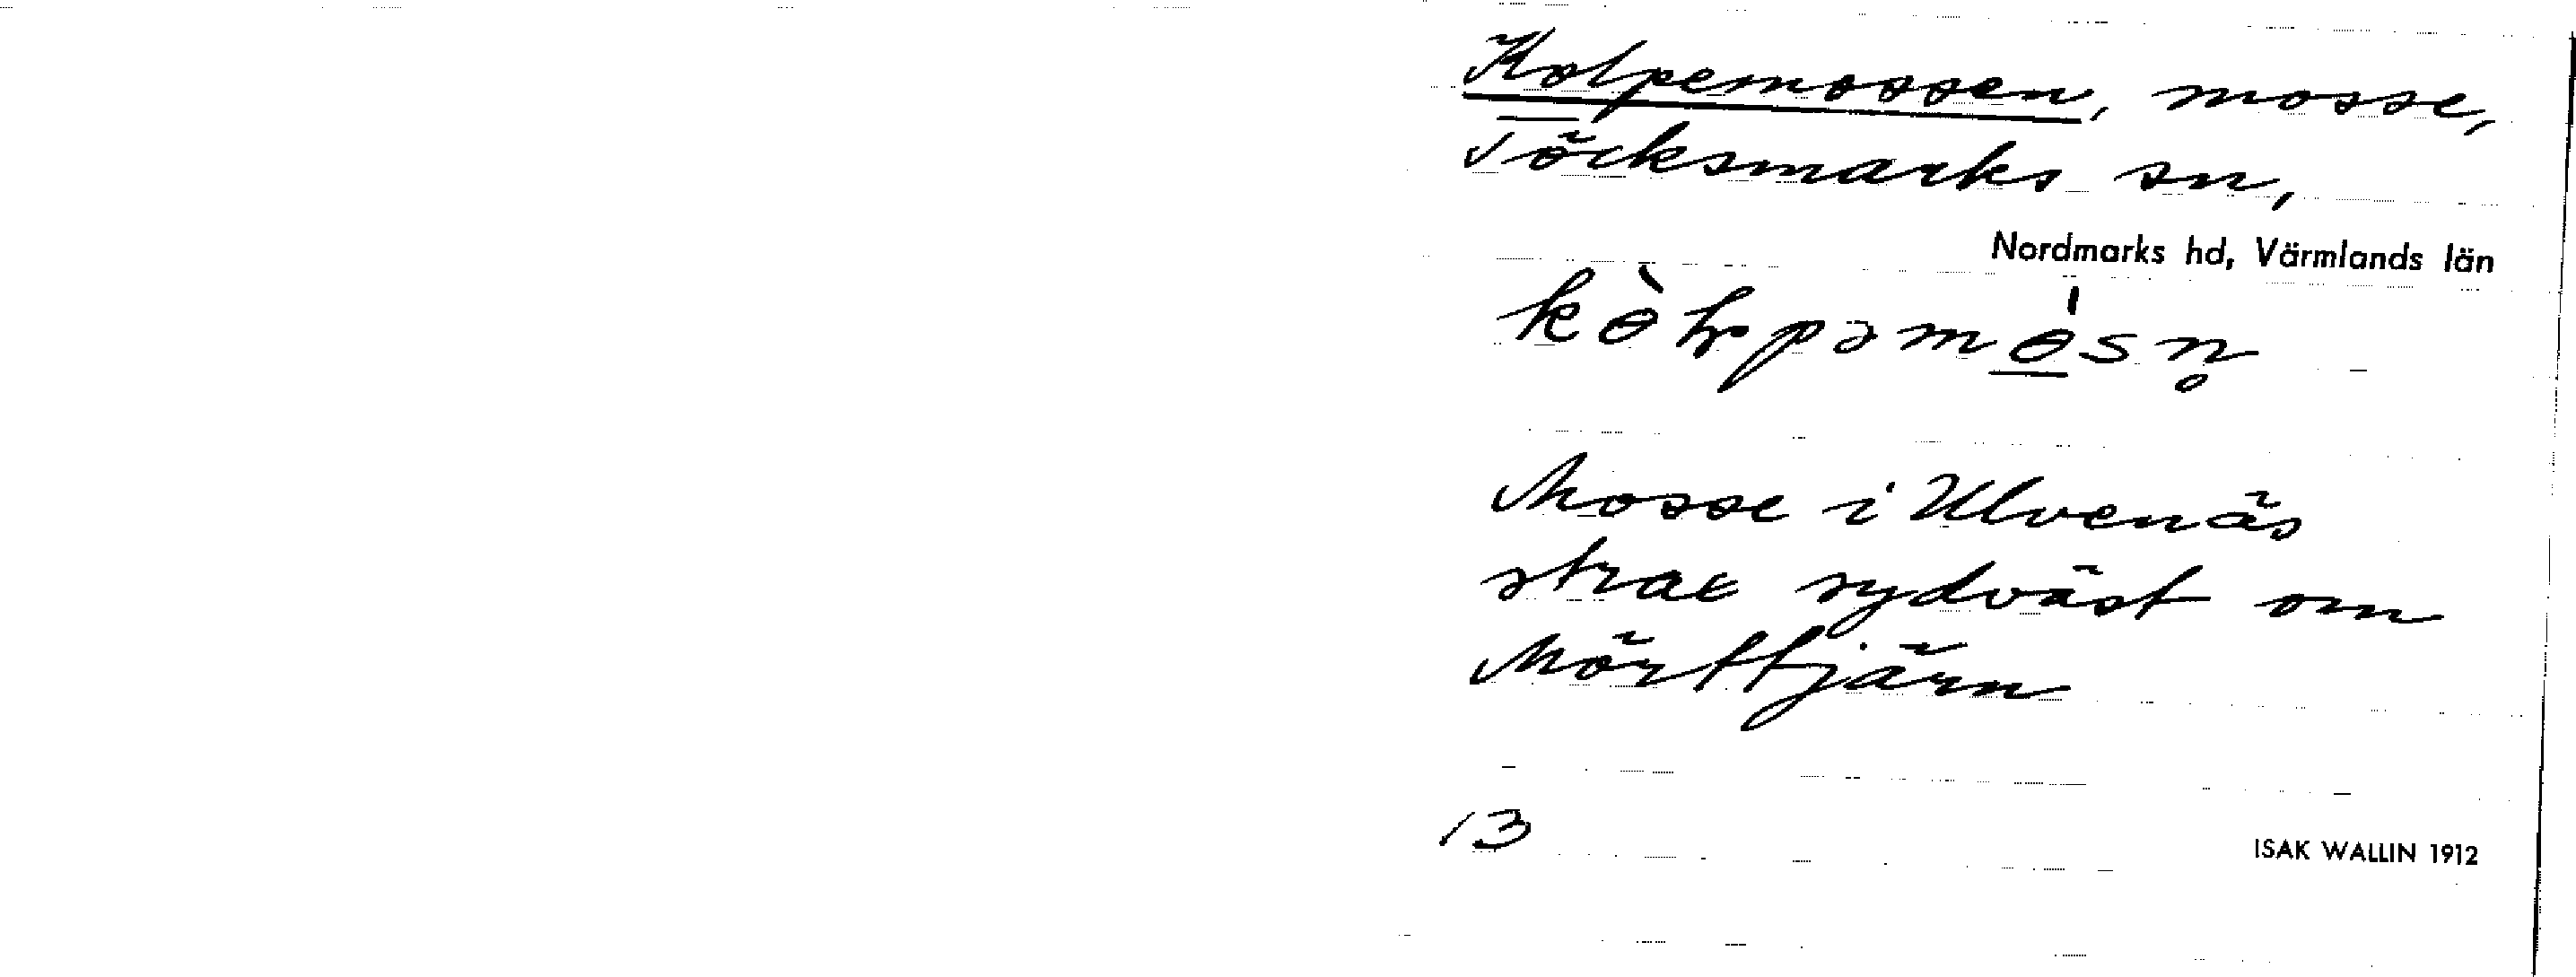 Kolpemossen, mosse,
Töcksmarks sn,
Nordmarks hd, Värmlands län
Mosse i Ulvenäs
strax sydväst om
Mörttjärn
13
ISAK WALLIN 1912